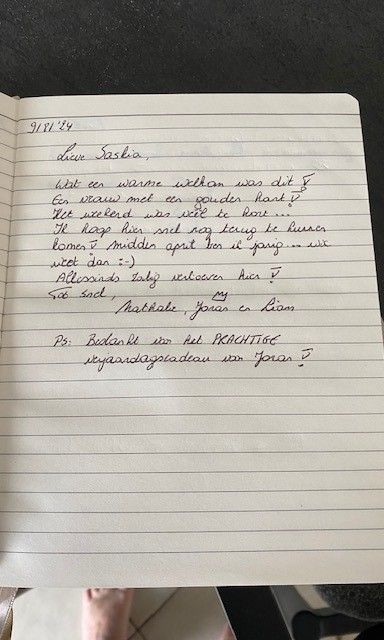 9/8/'24
Lieve Saskia,
Wat een warme welkom was dit
Een vrouw met een gouden hart
Het weekend was veel te kort ...
Ik hoop hier snel nog terug te kunnen
komen midden april ben ik jarig ... wie
weet dan :-)
Alleszinds zalig vertoeven hier
Tot snel,
Nathalie, Joran en Liam
Ps: Bedankt voor het PRACHTIGE
verjaardagscadeau van Joran